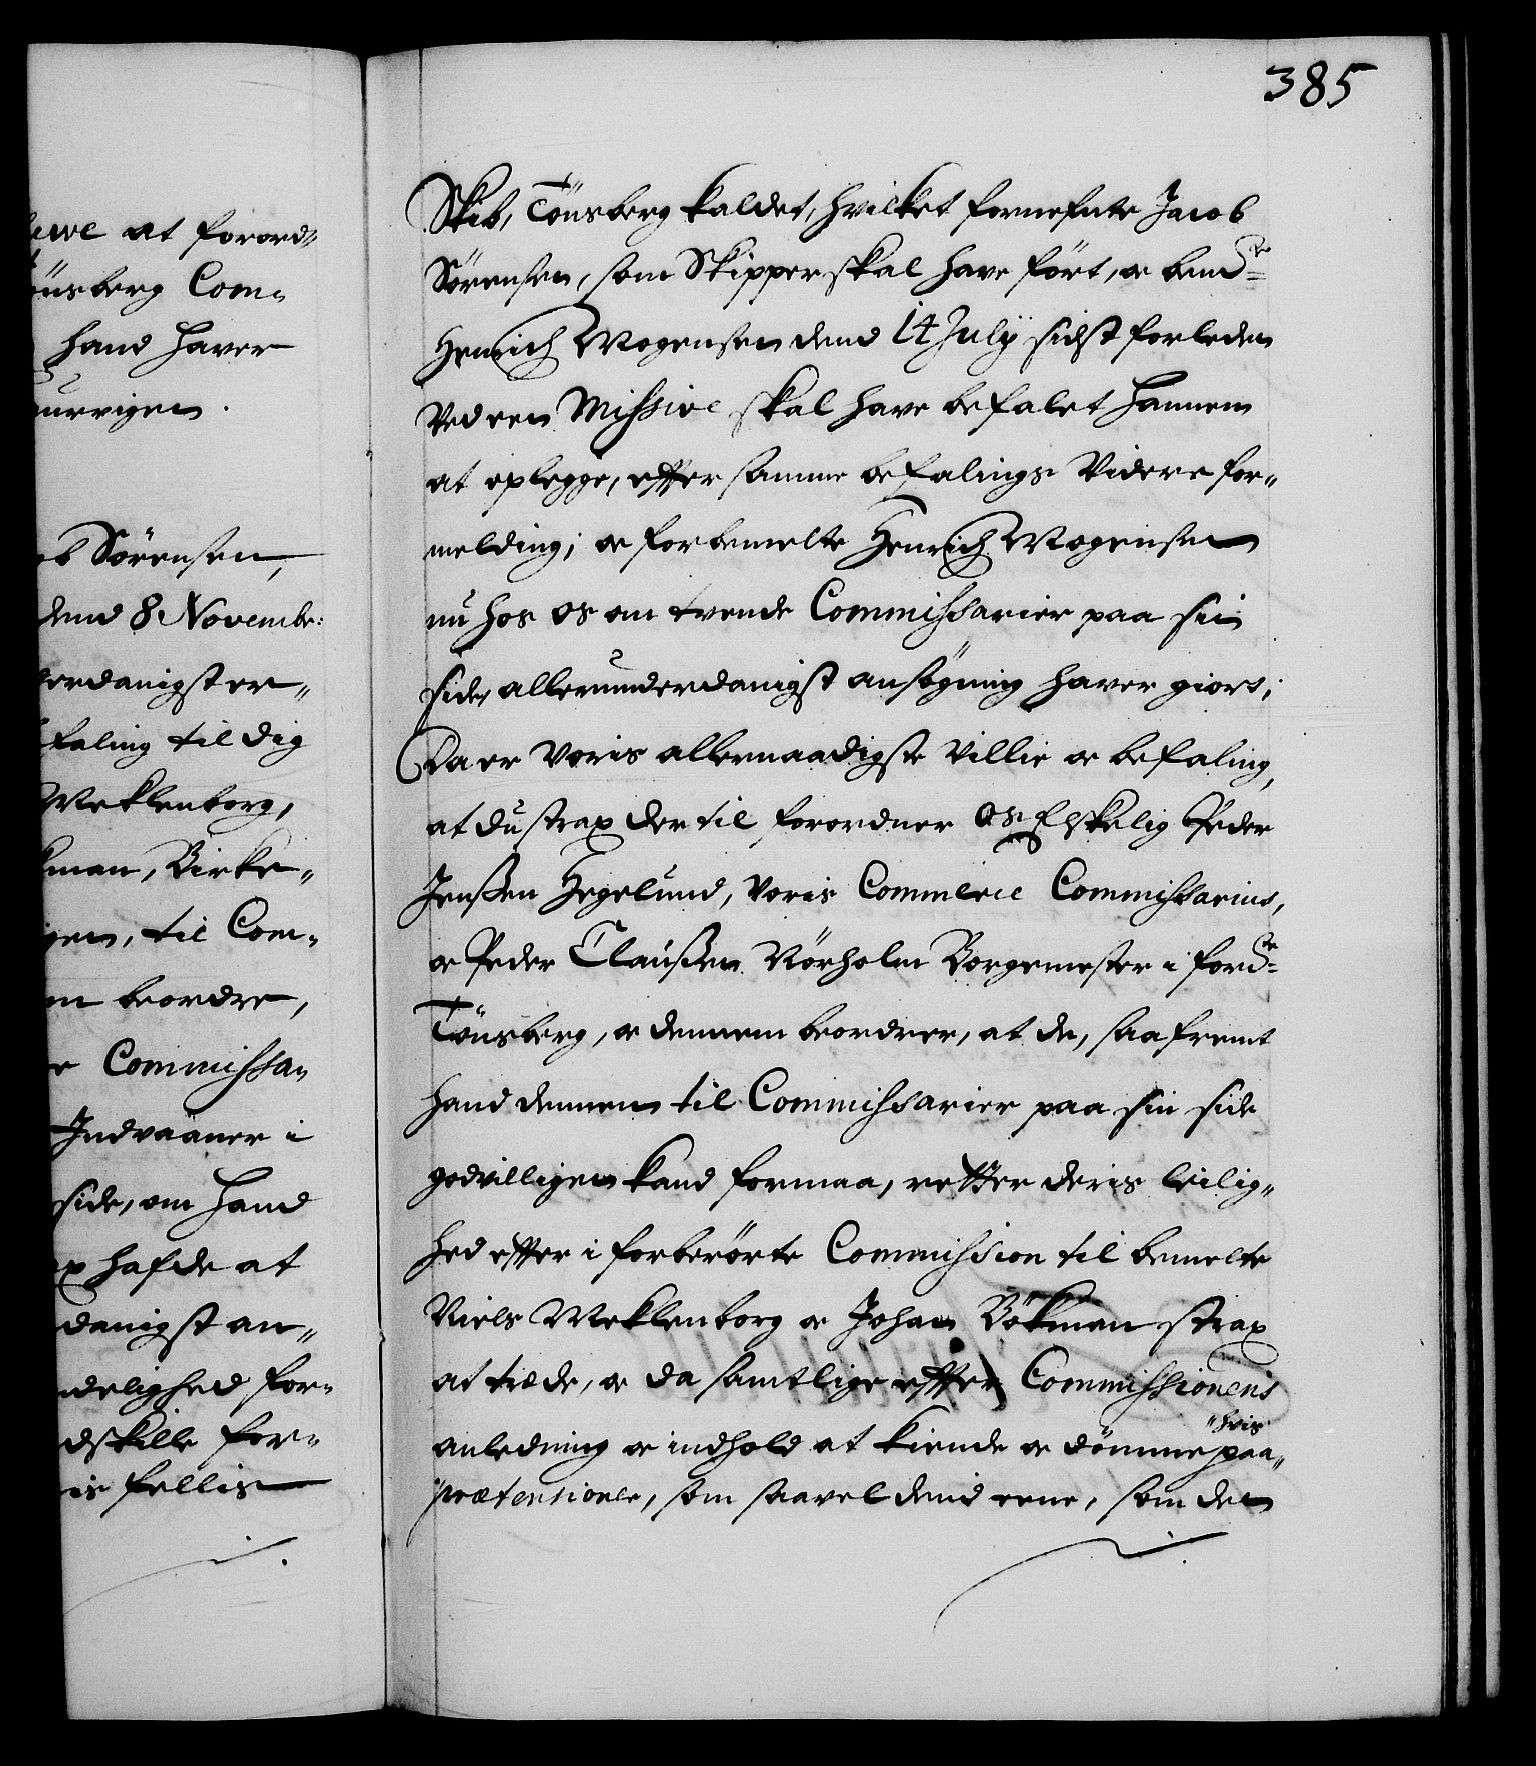 385
Skib, Tönsberg kaldet, hvilket fornefnte Jacob
Sörensen, som Skipper skal have fört, oc bemd.te
Henrich Mogensen dend 14 July sidst forleden
Ved een Missive skal have befalet hannem
at oplegge, effter samme befalings Videre for„
melding; oc forbemelte Henrich Mogensen
nu hos os om tvende Commissarier paa sin
side, allerunderdanigst ansögning haver giort;
Da er Voris allernaadigste Villie oc befaling,
at du strax der til forordner Os Elskelig Peder
Jenssen Hegelund, Voris Commerce Commissarius,
oc Peder Claussen Nörholm Borgemester i ford.te
Tönsberg, oc dennem beordrer, at de, saafremt
hand dennem til Commissarier paa sin side
godvilligen kand formaa, retter deris leilig„
hed effter i forberörte Commission til bemelte
Niels Meklenborg oc Johan Bökman strax
at træde, oc da samtlige effter Commissionens
anledning oc indhold at kiende oc dömme paa„
„hvis
prætensioner, som saavel dend eene, som den
ewe at forord„
önsberg Com„
hand haver
urrigen.
ob Sörensen,
dend 8 Novembr:
erdanigst er„
faling til dig
Meklenborg,
kman, Birke„
gen, til Com„
m beordre,
e Commissa„
Indvaaner i
side, om hand
x hafde at
danigst an„
delighed for„
dskille for„
is fellis